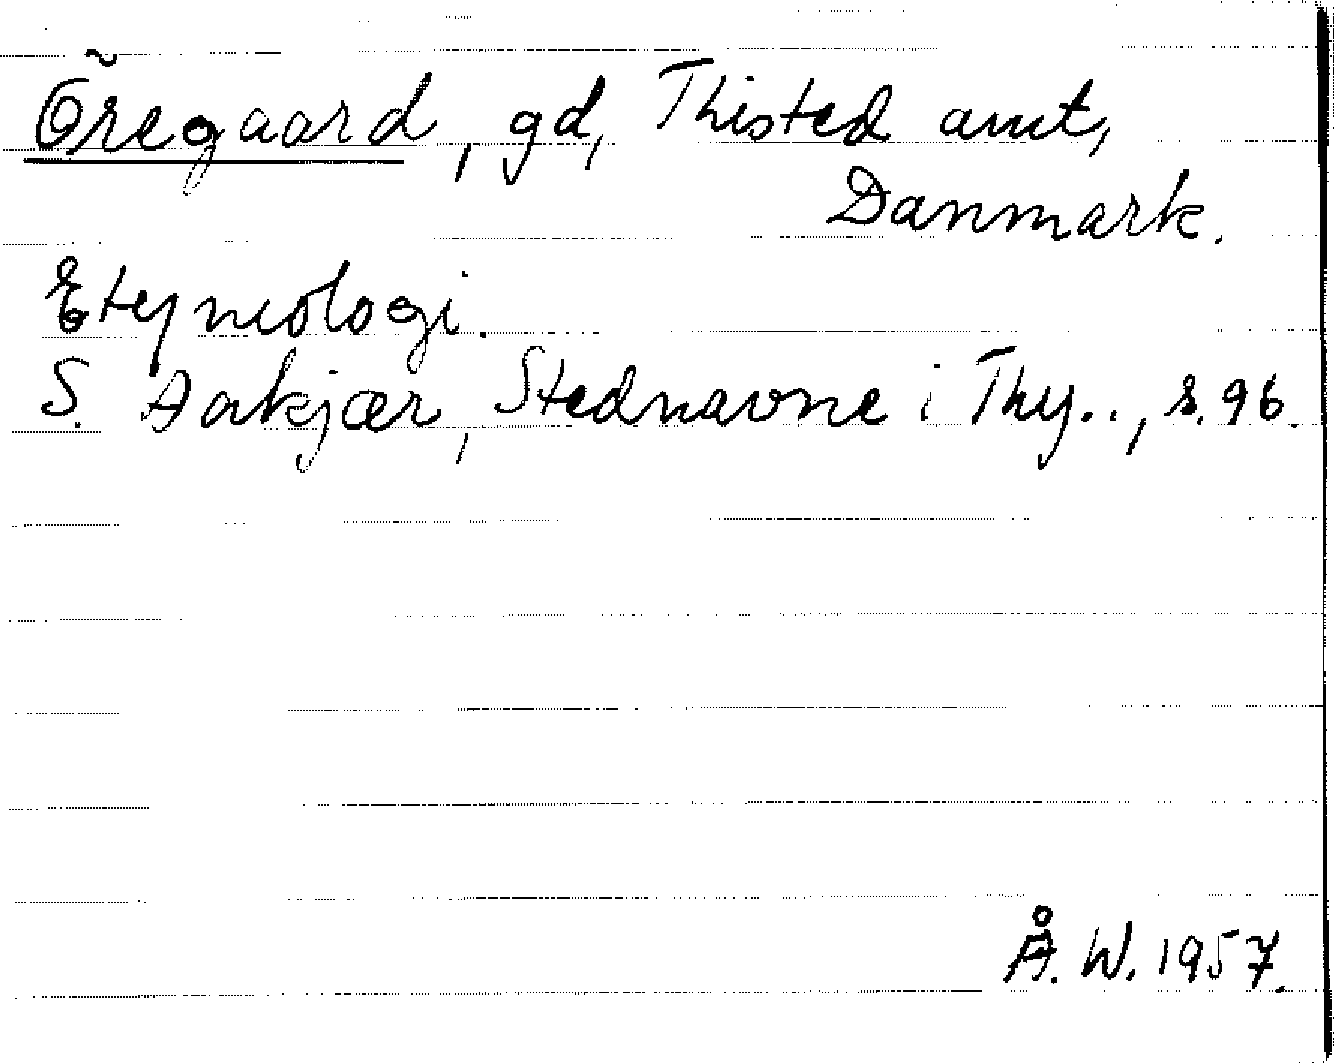 Öregaard, gd, Thisted amt,
Danmark.
Etymologi.
S. Aakjær, Stednavne i Thy.., s. 96.
Å. W. 1957.